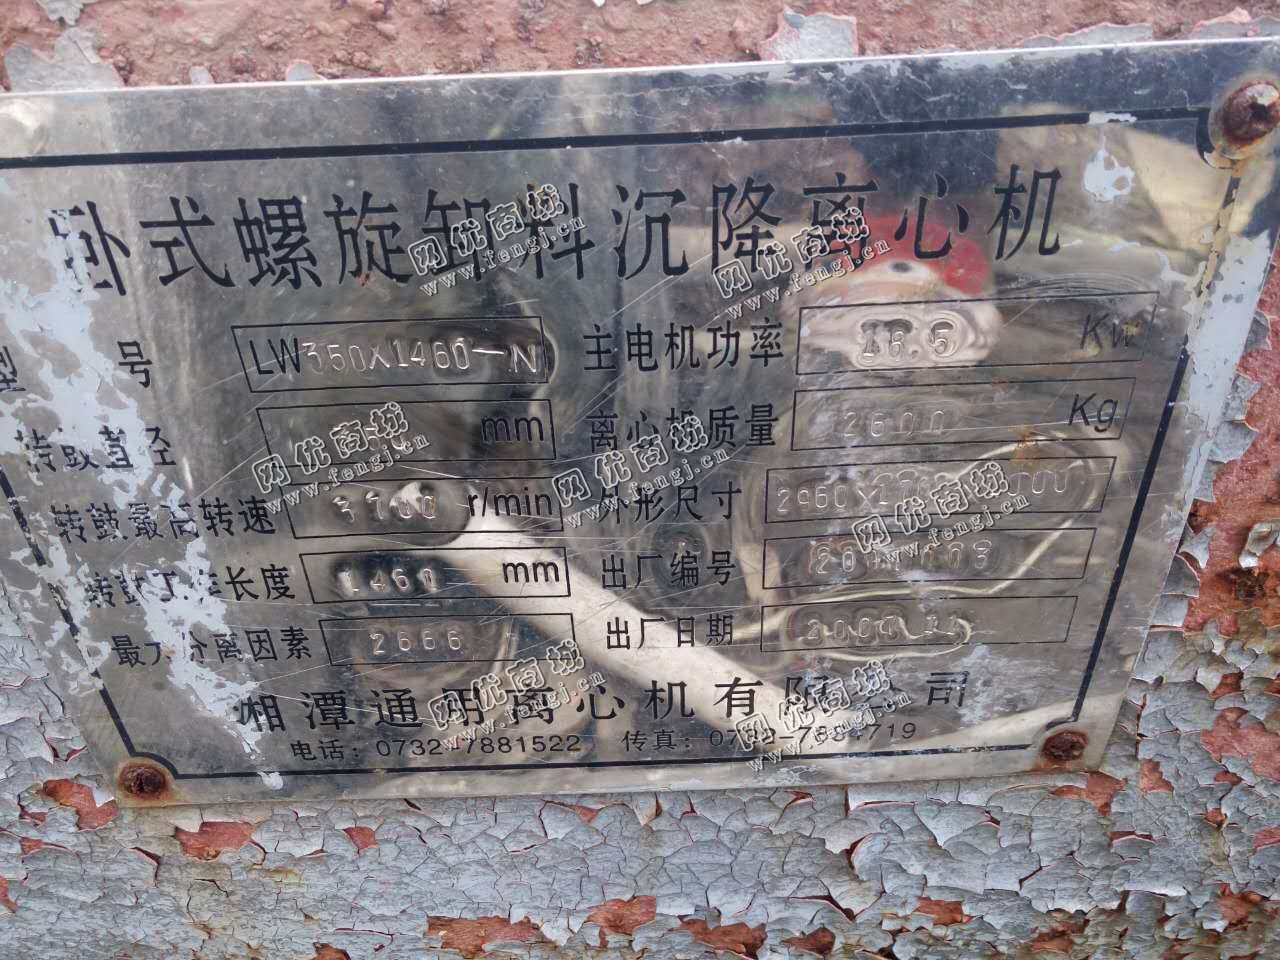 卧式螺旋卸料沉降离心机
型 号 LW350X1460-N 主电机功率 18.5 Kw
转鼓直径 mm 离心机质量 2600 Kg
转鼓最高转速 r/min 外形尺寸
转鼓工作长度 1460 mm 出厂编号
最大分离因素 2666 出厂日期
湘潭通用离心机有限公司
电话: 0732-7881522 传真:
网优商城
www.fengj.cn
网优商城
www.fengj.cn
网优商城
www.fengj.cn
网优商城
www.fengj.cn
网优商城
www.fengj.cn
网优商城
www.fengj.cn
网优商城
www.fengj.cn